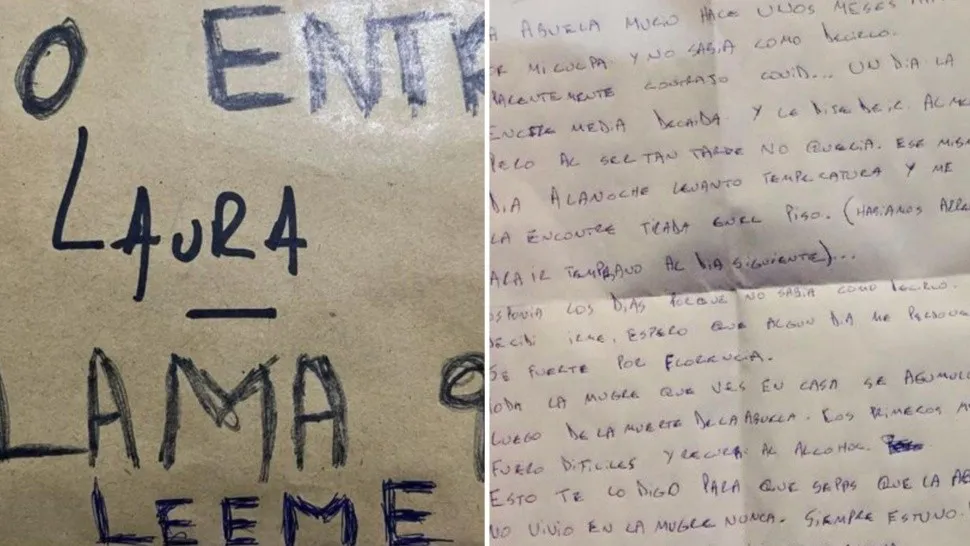 O ENT
LAURA
LAMA 9
LEEME
A ABUELA MURIO HACE UNOS MESES
OR MI CULPA Y NO SABIA COMO DECIRLO.
PARENTEMENTE CONTRAJO COVID... UN DIA LA
ENCTRE MEDIA DECAIDA. Y LE DIJE DE IR. AL ME
PERO AL SER TAN TARDE NO QUERIA. ESE MISM
DIA A LA NOCHE LEVANTO TEMPERATURA Y ME
LA ENCONTRE TIRADA EN EL PISO. (HABIAMOS ARRE
ARA IR TEMPRANO AL DIA SIGUIENTE)...
OSPONIA LOS DIAS PORQUE NO SABIA COMO DECIRLO.
DECIDI IRME, ESPERO QUE ALGUN DIA ME PERDONE
SE FUERTE POR FLORENCIA.
TODA LA MUGRE QUE VES EN CASA SE ACUMULO
LUEGO DE LA MUERTE DE LA ABUELA. LOS PRIMEROS M
FUERO DIFICILES Y RECURRI AL ALCOHOL.
ESTO TE LO DIGO PARA QUE SEPAS QUE LA AB
NO VIVIO EN LA MUGRE NUNCA. SIEMPRE ESTUVO.